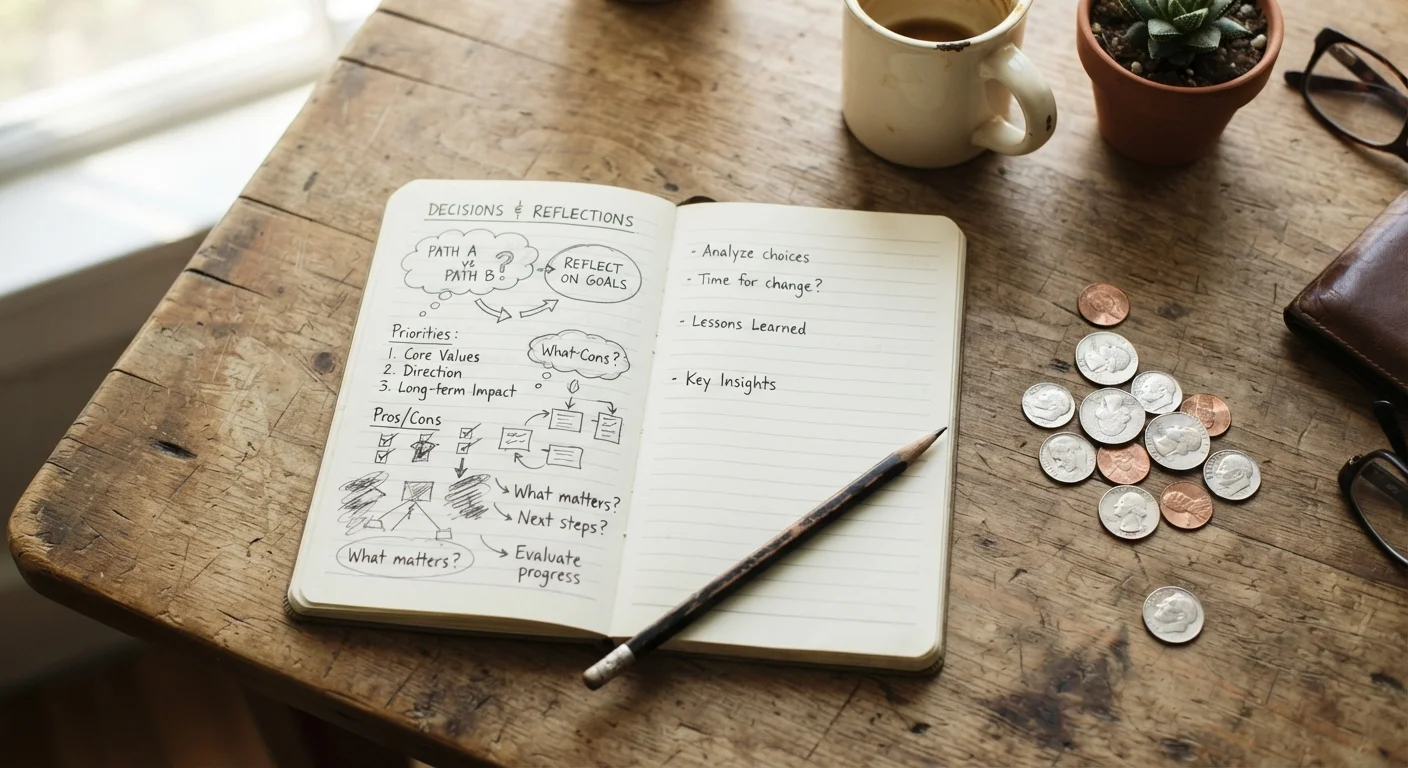 DECISIONS & REFLECTIONS
PATH A
vs
PATH B?
REFLECT
ON GOALS
Priorities:
1. Core Values
2. Direction
3. Long-term Impact
What Cons?
Pros/Cons
What matters?
Next steps?
Evaluate
progress
What matters?
- Analyze choices
- Time for change?
- Lessons Learned
- Key Insights